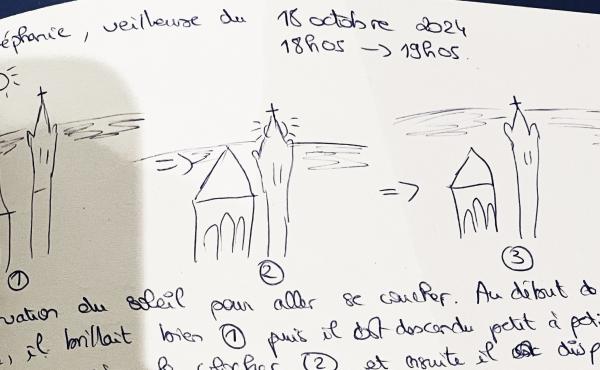 éphanie, veilleuse du 16 octobre 2024
18h05 → 19h05.
=> =>
① ② ③
vation du soleil pour aller se coucher. Au début
, il brillait bien ① puis il est descendu petit à peti
② et ensuite il disp